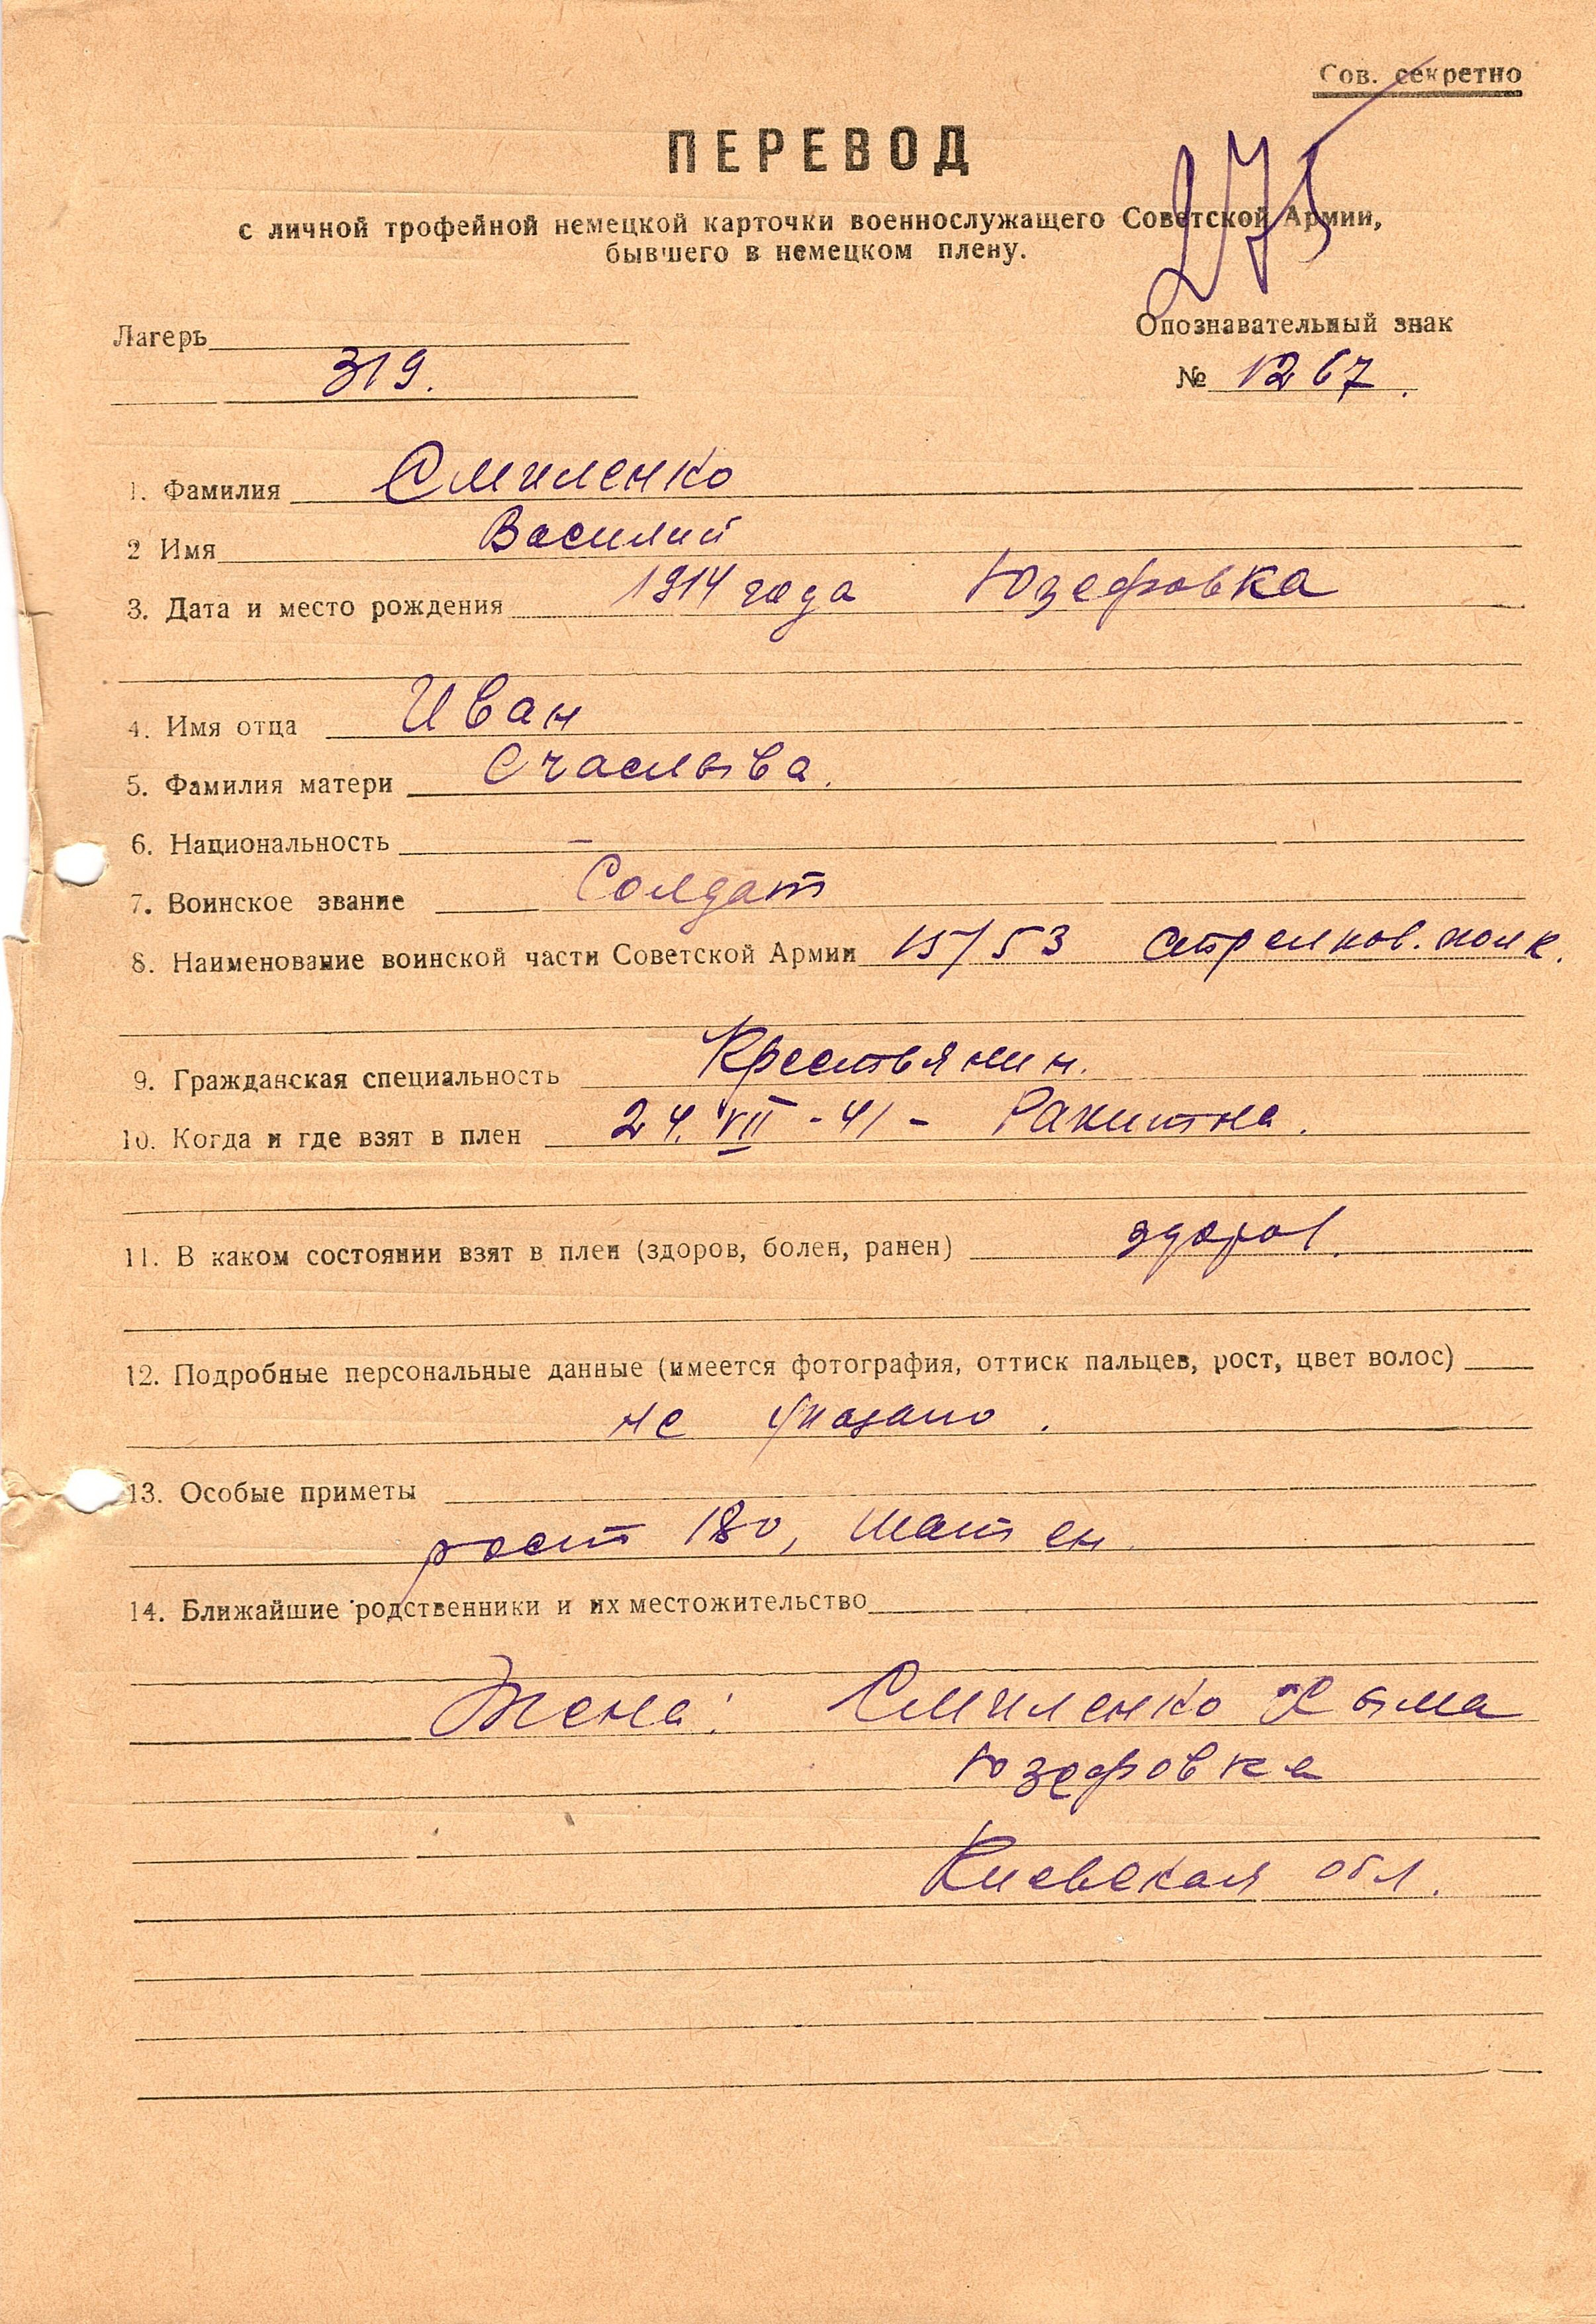 Сов. секретно
ПЕРЕВОД
275
с личной трофейной немецкой карточки военнослужащего Советской Армии,
бывшего в немецком плену.
Лагерь
Опознавательный знак
319.
№ 1267.
1. Фамилия Смиленко
2 Имя Василий
3. Дата и место рождения 1914 года Юзефовка
4. Имя отца Иван
5. Фамилия матери Счаслыва.
6. Национальность —
7. Воинское звание Солдат
8. Наименование воинской части Советской Армии 15/53 стрелков. полк.
9. Гражданская специальность Крестьянин.
10. Когда и где взят в плен 24. VII - 41 - Ракитна.
11. В каком состоянии взят в плен (здоров, болен, ранен) здоров.
12. Подробные персональные данные (имеется фотография, оттиск пальцев, рост, цвет волос)
не указано.
13. Особые приметы
рост 180, шатен
14. Ближайшие родственники и их местожительство
Жена: Смиленко
Юзефовка
Киевская обл.